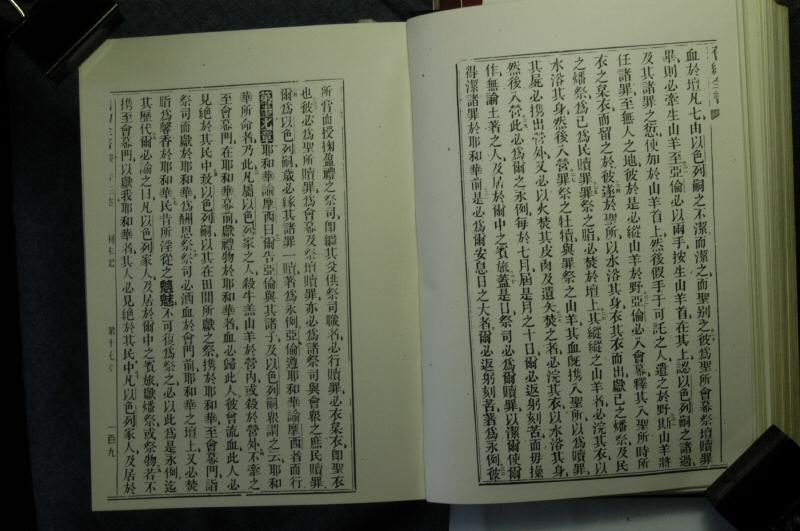 血於壇凡七由以色列嗣之不潔而潔之而聖别之彼爲聖所會幕祭壇贖罪
畢則必牽生山羊至亞倫必以兩手按生山羊首在其上認以色列嗣之諸過
及其諸罪之愆使加於山羊首上然後假手于可託之人遣之於野斯山羊將
任諸罪至無人之地彼於是必縱山羊於野亞倫必入會幕釋其入聖所時所
衣之枲衣而留之於彼遂於聖所以水浴其身衣其衣而出獻已之燔祭及民
之燔祭爲已爲民贖罪罪祭之脂必焚於壇上其縱縱之山羊者必浣其衣以
水浴其身然後入營罪祭之牡犢與罪祭之山羊其血旣携入聖所以爲贖罪
其屍必携出營外又必以火焚其皮肉及遺矢焚之者必浣其衣以水浴其身
然後入營此必爲爾之永例每於七月屆是月之十日爾必返躬刻苦而毋操
作無論土著之人及居於爾中之賓旅蓋是日祭司必爲爾贖罪以潔爾使爾
得潔諸罪於耶和華前是必爲爾安息日之大者爾必返躬刻苦著爲永例彼
所膏而授掬盈禮之祭司卽繼其父供祭司職者必行贖罪必衣枲衣卽聖衣
也彼必爲聖所贖罪爲會幕及祭壇贖罪亦必爲諸祭司與會衆之庶民贖罪
爾爲以色列嗣歲必緣其諸罪一贖著爲永例亞倫遵耶和華諭摩西者而行
第十七章耶和華諭摩西曰爾告亞倫與其諸子及以色列嗣衆謂之云耶和
華所命者乃此凡屬以色列家之人殺牛羔山羊於營內或殺於營外不牽之
至會幕門在耶和華幕前獻禮物於耶和華者血必歸此人彼會流血此人必
見絕於其民中致以色列嗣以其在田間所獻之祭携於耶和華至會幕門詣
祭司而獻於耶和華爲酬恩祭祭司必洒血於會門前耶和華之壇上又必焚
脂爲馨香於耶和華民昔所淫從之魑魅不可復爲祭之必以此爲是永例迄
其歷代爾必諭之曰凡以色列家人及居於爾中之賓旅獻燔祭或祭物若不
携至會幕門以獻我耶和華者其人必見絕於其民中凡以色列家人及居於
第十七章
一百九